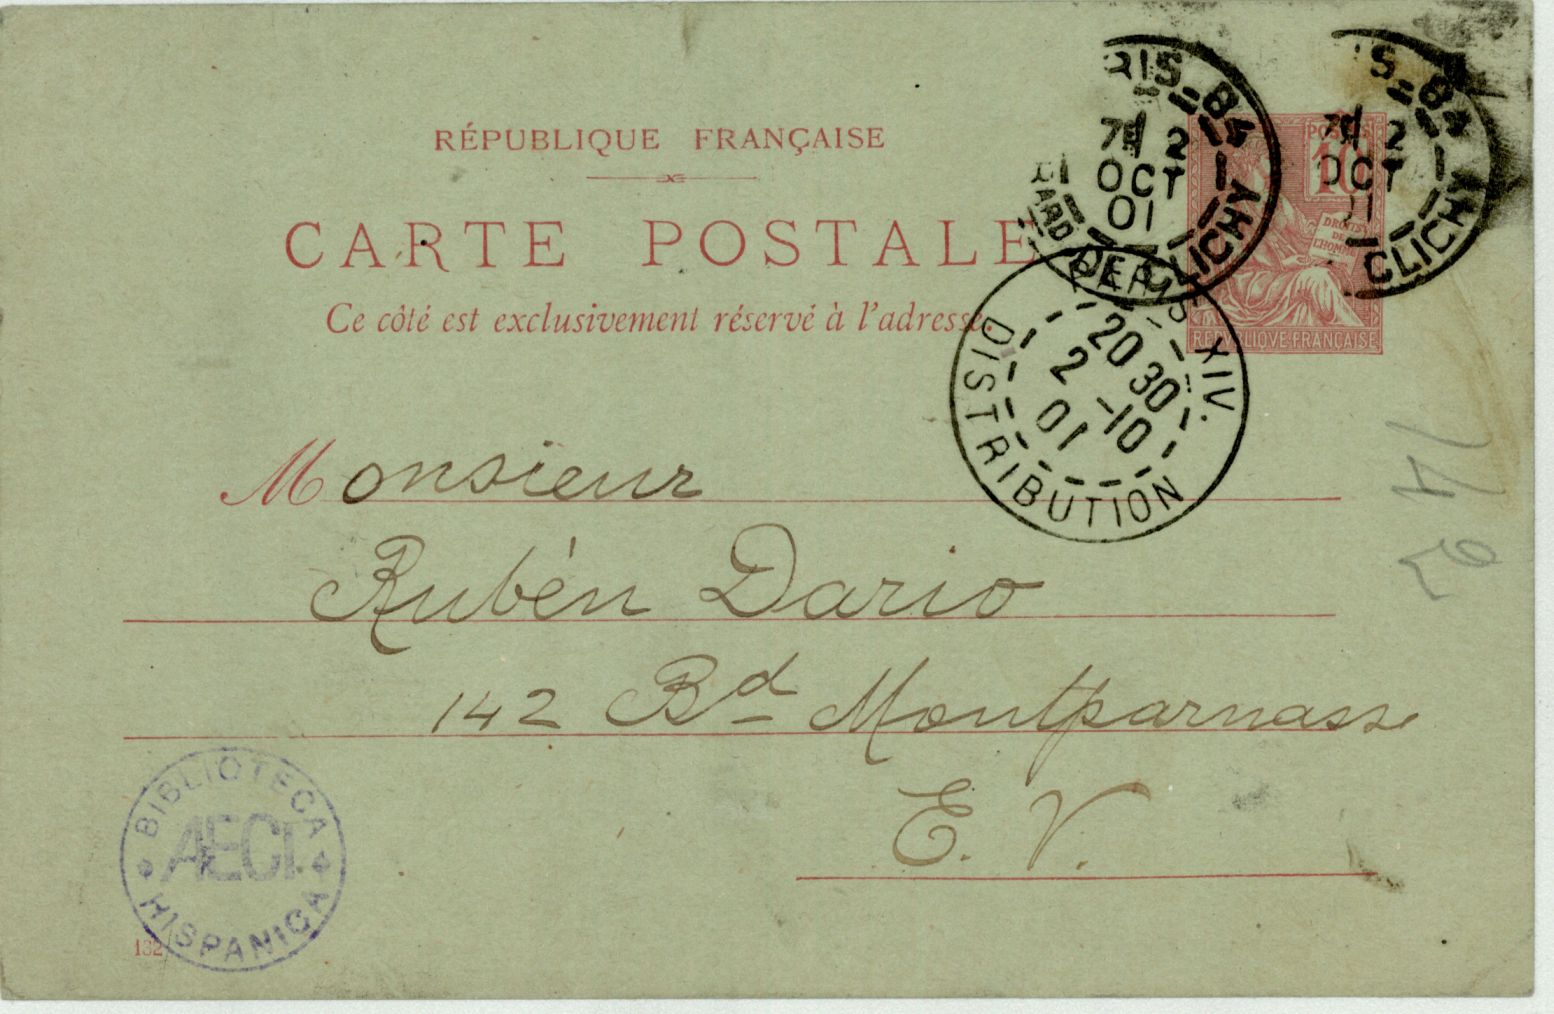 RÉPUBLIQUE FRANÇAISE
CARTE POSTALE
Ce côté est exclusivement réservé à l'adresse.
RIS_84
7 2
OCT
01
CLICHY
S_84
7 2
OCT
CLICHY
POSTES
10
DROITS
DE
L'HOMME
REPUBLIQUE FRANÇAISE
XIV.
20 30
2 -10
01
DISTRIBUTION
Monsieur
Rubén Dario
142 Bd Montparnasse
E. V.
142
BIBLIOTECA
AECI
HISPANICA
132